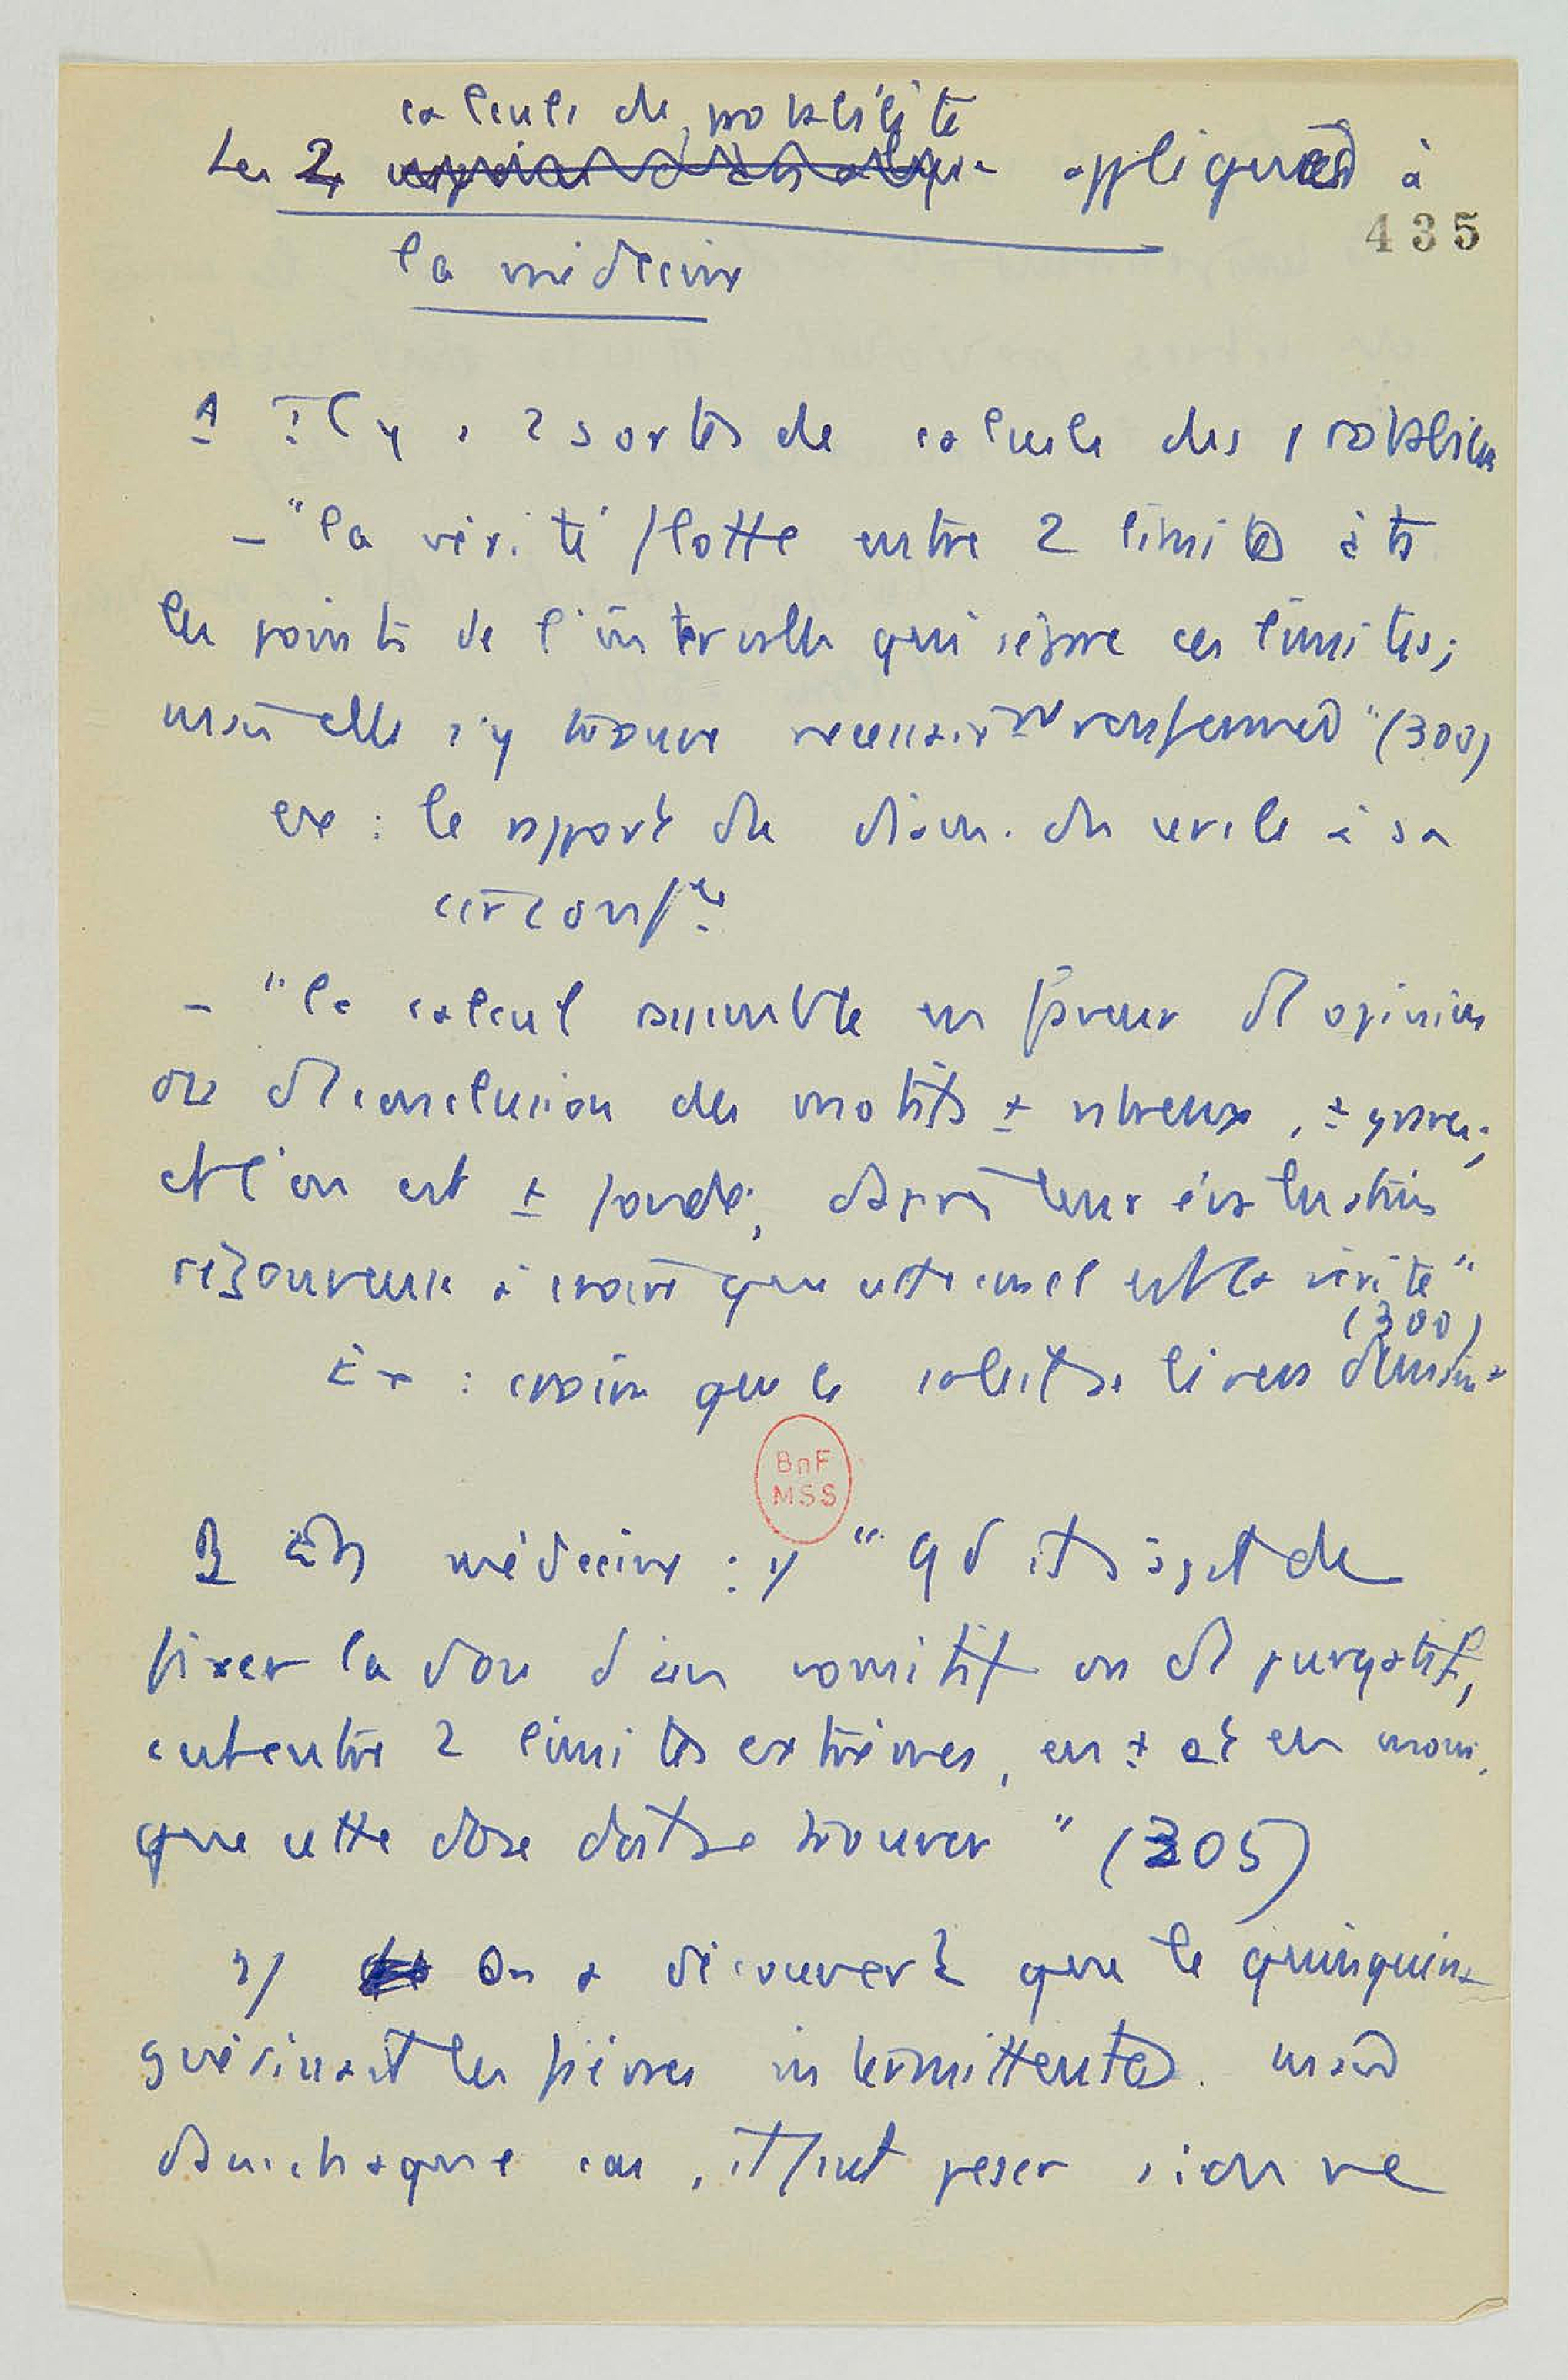 calculs de probabilité
Les 2 appliqués à
435
la médecine
A Il y a 2 sortes de calculs des probabilités
– "la vérité flotte entre 2 limites à ts
les points de l'intervalle qui sépare ces limites;
mais elle s'y trouve nécessairt renfermée" (300)
ex : le rapport du diam. du cercle à sa
circonfce
– "le calcul rassemble en faveur d'1 opinion
ou d'1 conclusion des motifs ± nbreux, ± graves;
et l'on est ± fondé, d'après leur évaluation
rigoureuse à croire que cette concl est la vérité"
(300)
Ex : croire que le soleil se lèvera demain
BnF
MSS
B En médecine : 1/ "Qd il s'agit de
fixer la dose d'un vomitif ou d'1 purgatif,
c'est entre 2 limites extrêmes, en + et en moins
que cette dose doit se trouver" (305)
2/ On a découvert que le quinquina
guérissait les fièvres intermittentes. mais
dans chaque cas, il faut peser si on ne